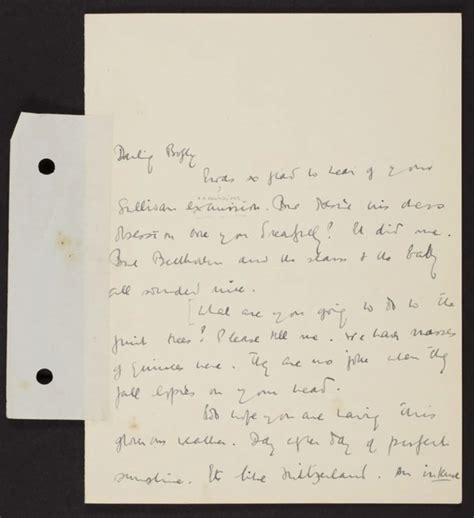 Darling
I was so glad to hear of your
Sullivan excursion.
obsession one you dreadfully? It did me.
But Beethoven and the stars & the baby
all sounded nice.
[What are you going to do to the
fruit trees? Please tell me. We have masses
of quinces here. They are no joke when they
fall on your head.
Do hope you are having this
glorious weather. Day after day of perfect
sunshine. It's like Switzerland. An